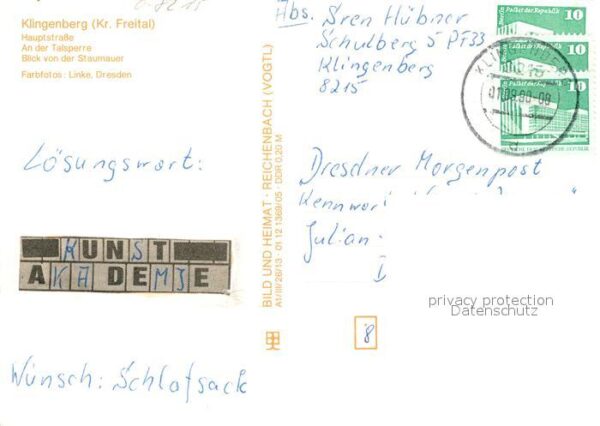 Klingenberg (Kr. Freital)
Hauptstraße
An der Talsperre
Blick von der Staumauer
Farbfotos: Linke, Dresden
Abs. Sren Hübner
Schulberg 5 PF33
Klingenberg
8215
10
Berlin Palast der Republik
10
Berlin Palast der Republik
10
KLINGENBERG
8215
01.09.90-08
Lösungswort:
KUNST
AKADEMIE
Wunsch: Schlafsack
BILD UND HEIMAT · REICHENBACH (VOGTL)
A1/III/26/13 · 01 12 1369/05 · DDR 0,20 M
Dresdner Morgenpost
Kennwort
Julian
privacy protection
Datenschutz
8